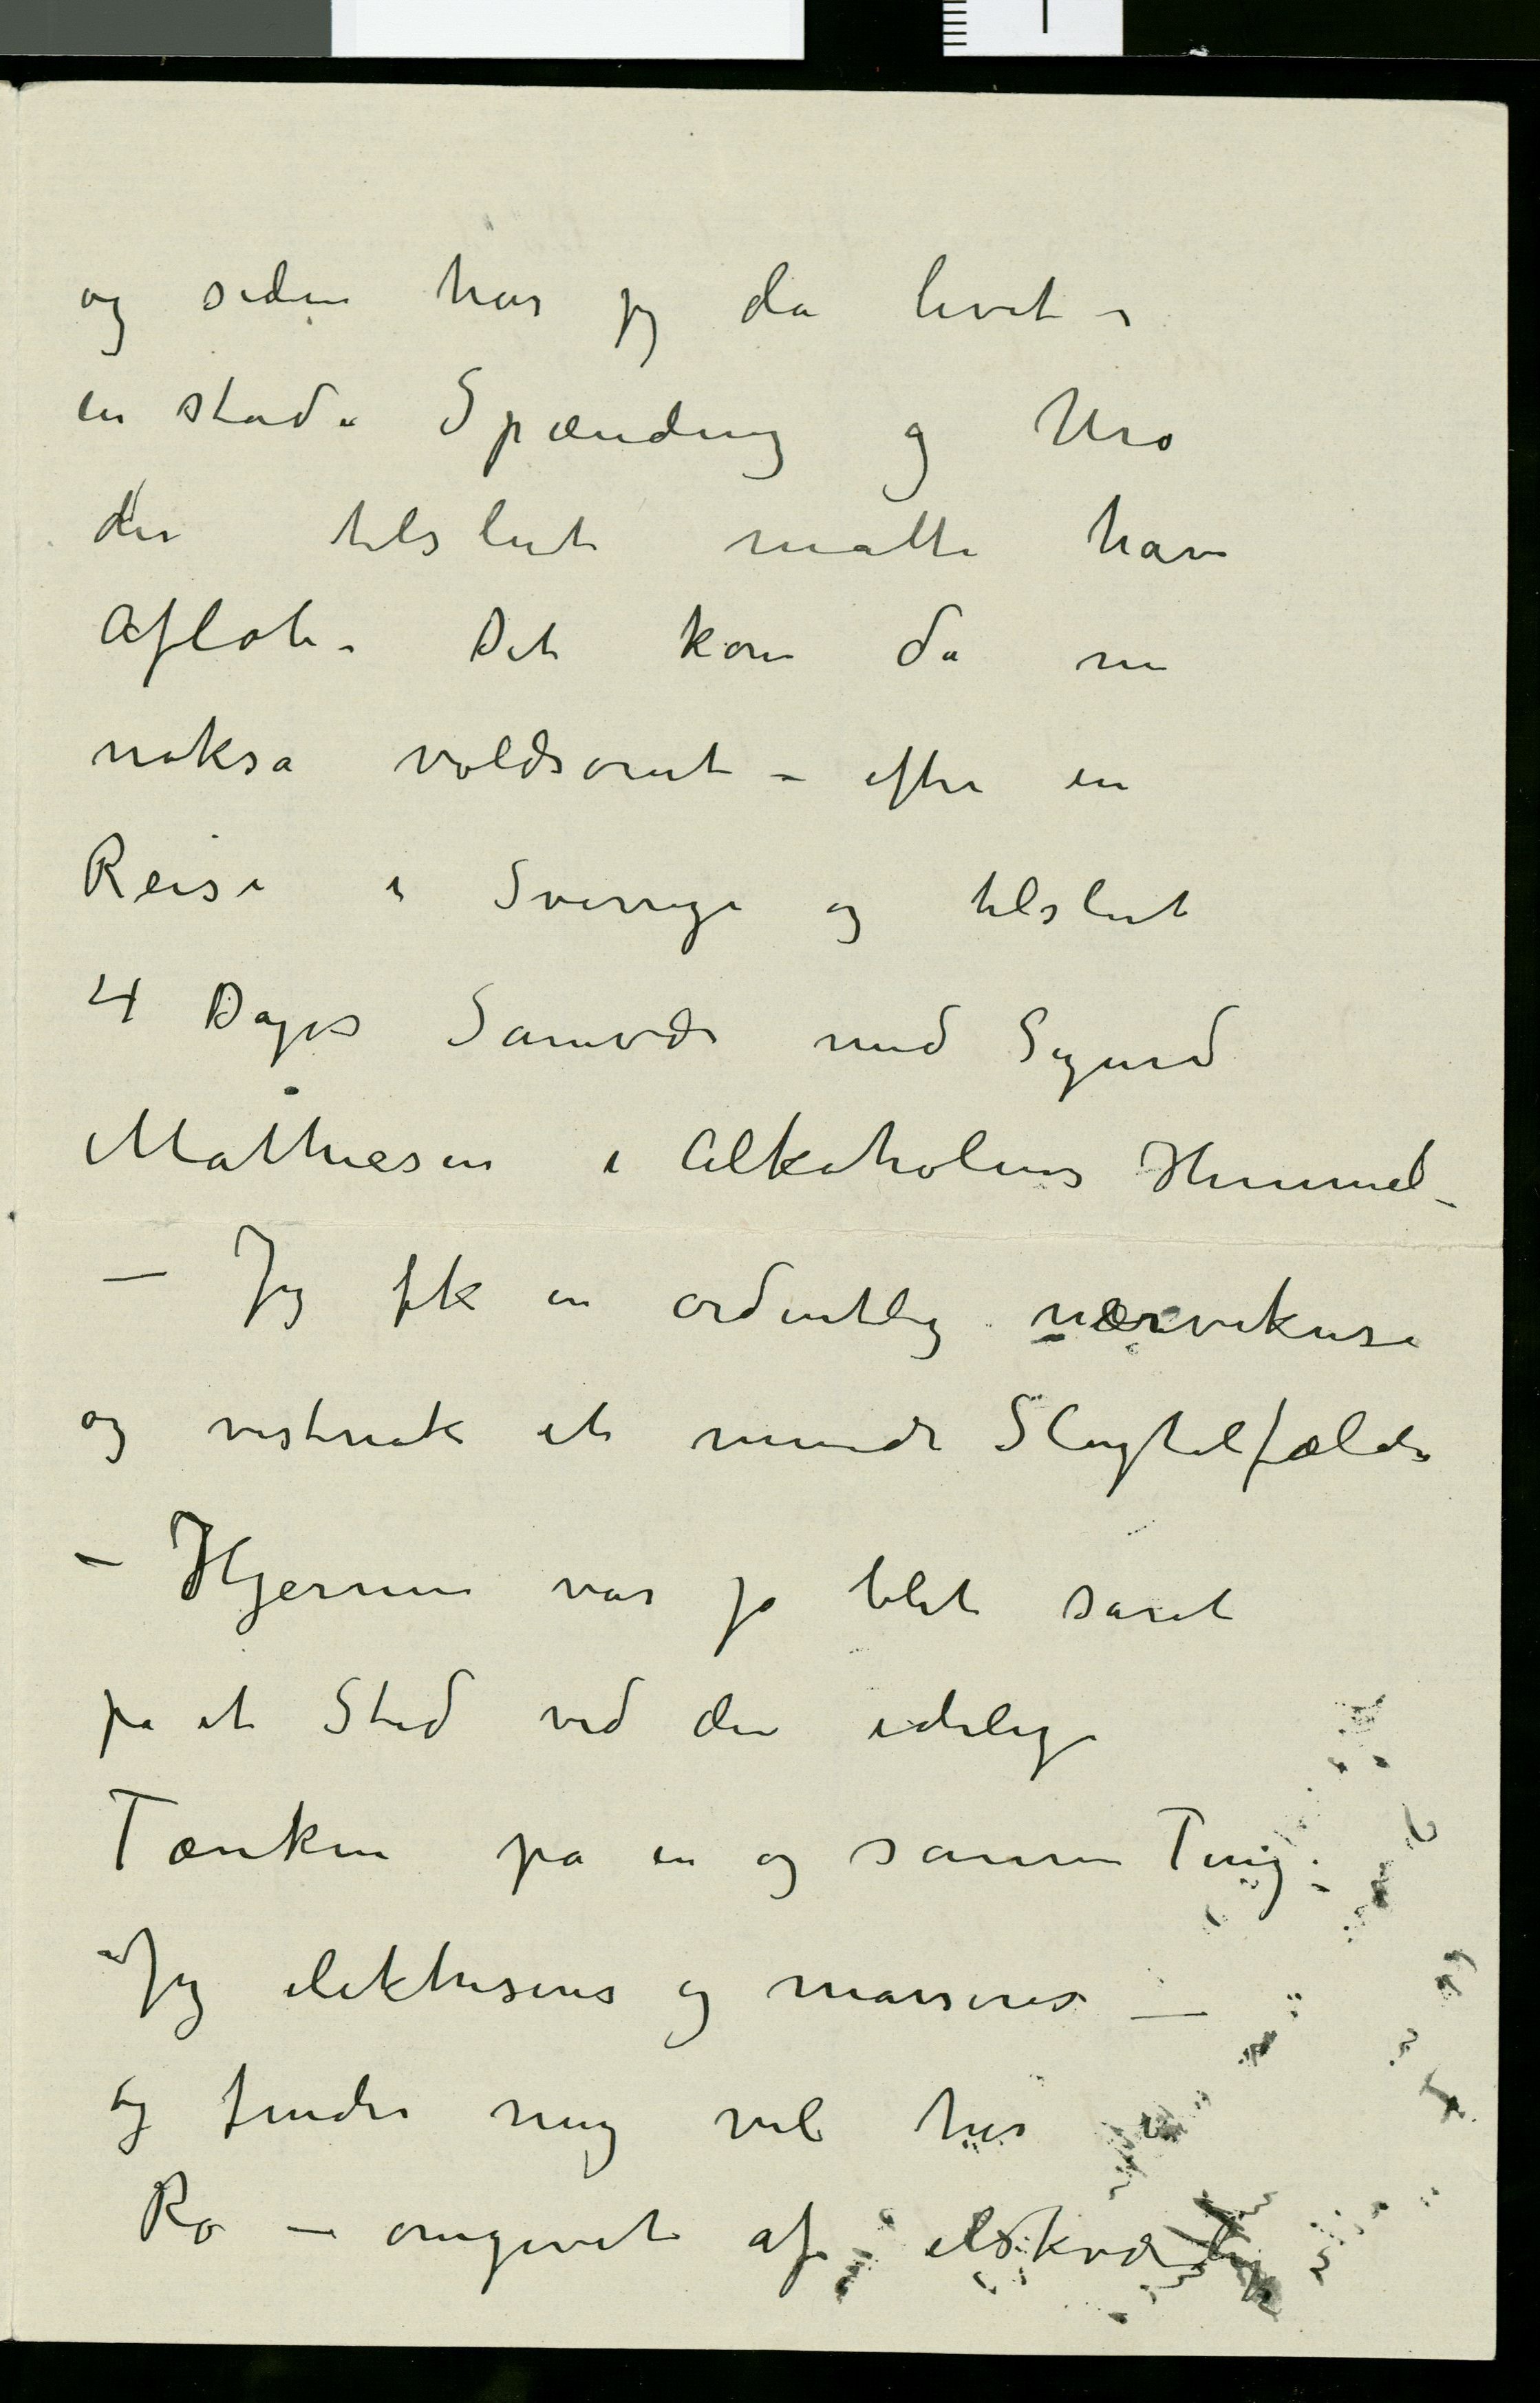 og siden har jeg da levet i
en stadi Spænding og Uro
der tilslut måtte have
Afløb. Det kom da nu
noksa voldsomt – efter en
Reise i Sverrige og tilslut
4 Dages Samvær med Sigurd
Mathiesen i Alkoholens Himmel –
– Jeg fik en ordentlig nærvekrise
og vistnok et mindre Slagtilfælde
– Hjernen var jo blet såret
på et Sted ved den idelige
Tænken på en og samme Ting. –
Jeg elektriseres og masseres –
og finder mig vel her i
Ro – omgivet af elskværdige